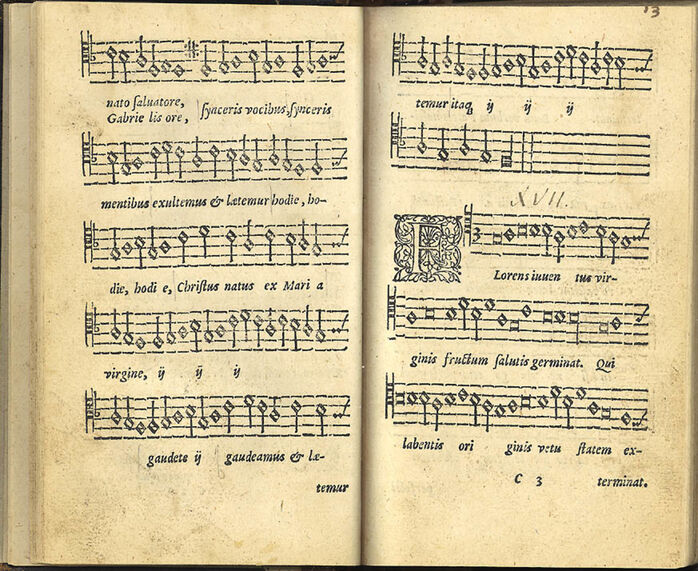 nato saluatore,
Gabrie lis ore, synceris vocibus, synceris
mentibus exultemus & lætemur hodie, ho-
die, hodi e, Christus natus ex Mari a
virgine, ij ij ij
gaudete ij gaudeamus & læ-
temur
13
temur itaq; ij ij ij
XVII.
FLorens iuuen tus vir-
ginis fructum salutis germinat. Qui
labentis ori ginis vetu statem ex-
C 3 terminat.